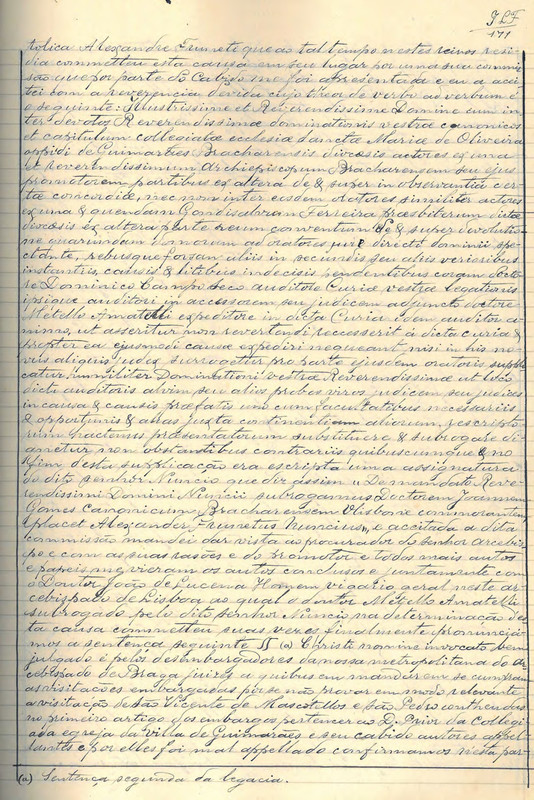 JLF
171
tolica Alexandre Frumete que ao tal tempo nestes reinos resi-
dia commetteu esta causa em seu lugar por uma sua commis-
são que por parte do Cabido me foi apresentada e eu a acei-
tei com a reverencia devida cujo theor de verbo ad verbum é
o seguinte: Illustrissime et Reverendissime Domine cum in-
ter devotos Reverendissimæ dominationis vestræ canonicos
et capitulum collegiatæ ecclesiæ Sanctæ Mariæ de Oliveira
oppidi de Guimarães Bracharensis diocæsis actores ex una
et Reverendissimum Archiepiscopum Bracharensem seu ejus
promotorem partibus ex altera de & super inobservantia cer-
tæ concordiæ, nec non inter eosdem oratores similiter actores
ex una & quendam Gondisalvum Ferreira præsbiterum dictæ
diocæsis ex altera parte reum conventum de & super devolutio-
ne quarumdam domorum ad oratores jure directi dominii spe-
ctante, rebusque forsan aliis in secundis seu aliis verioribus
instantiis, causis & litibus indecisis pendentibus coram docto-
re Dominico Camposeco auditore Curiæ vestræ legationis
ipsique auditori in accessorem seu judicem adjuncto doctore
Metello Amatelli expeditore in dicta Curia idem auditor a-
nimo, ut asseritur non revertendi reccesserit à dicta curia &
propter ea ejusmodi causæ expediri nequeant nisi in his no-
vus aliquis judex surrogetur pro parte ejusdem oratoris suppli-
catur humiliter Dominationi Vestræ Reverendissimæ ut loco
dicti auditoris alium seu alios probos viros judicem seu judices
in causa & causis præfatis una cum facultatibus necessariis
& opportunis & alias juxta continentiam aliorum rescripto-
rum hactenus præsentatorum substituere & subrogare di-
gnetur non obstantibus contrariis quibuscumque & no
fim desta supplicação era escripta uma assignatura
do dito senhor Nuncio que diz assim "De mandato Reve-
rendissimi Domini Nuncii subrogamus Doctorem Joannem
Gomes Canonicum Bracharensem Ulisbone commorantem
placet Alexander Frumetus Nuncius", e acceitada a dita
commissão mandei dar vista ao procurador do Senhor Arcebis-
pe e com as suas rasões e do promotor e todos mais autos
e papeis me vieram os autos conclusos e juntamente com
o Doutor João de Lucena Homem vigario geral neste ar-
cebispado de Lisboa ao qual o doutor Metello Amatelli
subrogado pelo dito senhor Nuncio na determinação des-
ta causa commetteu suas vezes finalmente pronuncia-
mos a sentença seguinte (a) Christi nomine invocato bem
julgado é pelos desembargadores da nossa metropolitana do Ar-
cebispado de Braga juizes a quibus em mandarem se cumpram
as visitações embargadas por se não provar em modo relevante
a visitação de São Vicente de Mascotellos e São Pedro contheudas
no primeiro artigo dos embargos pertencer ao D. Prior da Collegi-
ada egreja da villa de Guimarães e seu cabido autores appel-
lantes e por elles foi mal appellado confirmamos nesta par-
(a) Sentença segunda da legacia.